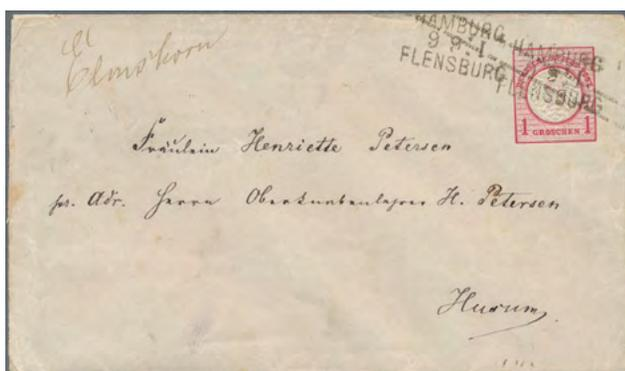 Elmshorn
HAMBURG HAMBURG
9 9. I.
FLENSBURG FLENSBURG
1 GROSCHEN 1
Fräulein Henriette Petersen
pr. Adr. Herrn Oberknabenlehrer H. Petersen
Husum